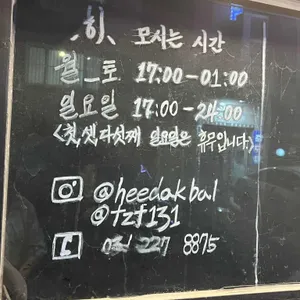 .히. 모시는 시간
월_토 17:00-01:00
일요일 17:00-24:00
<첫,셋,다섯째 일요일은 휴무입니다.>
@heedakbal
@fzf131
031 227 8875